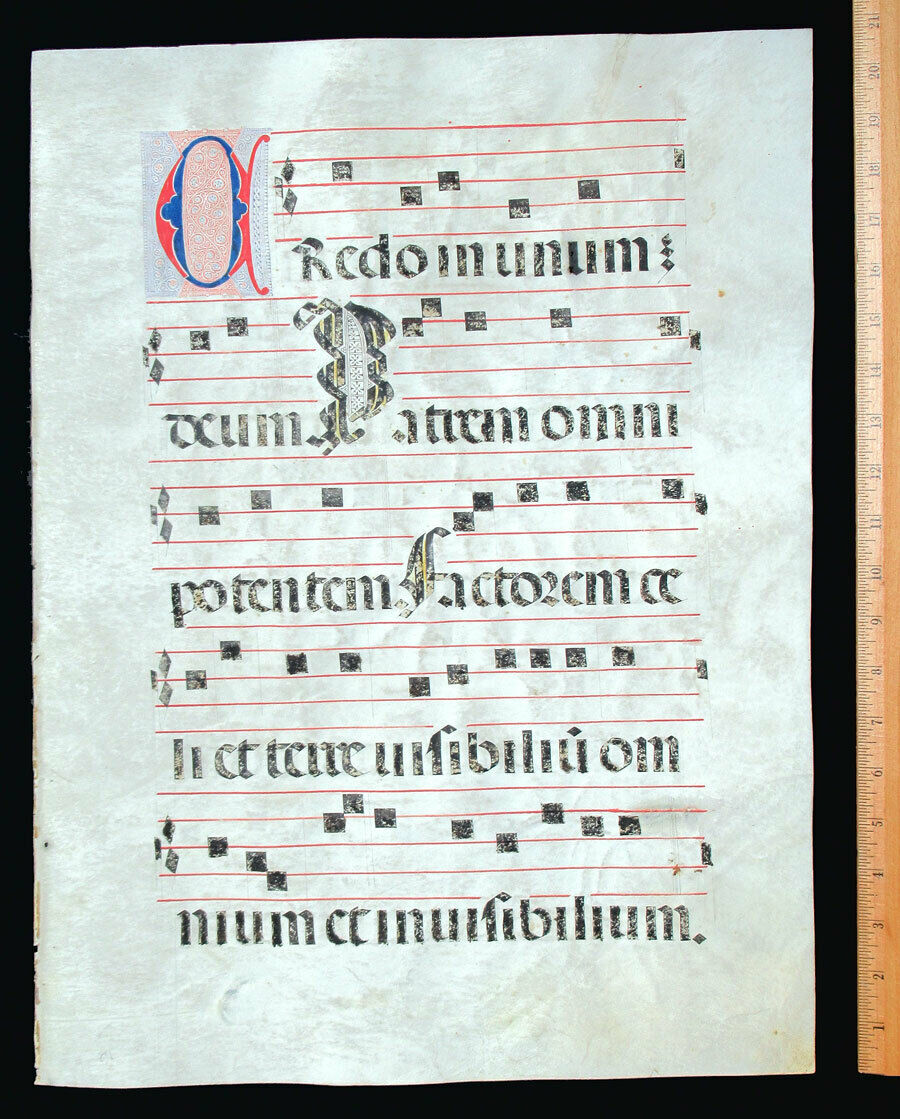 CRedo in unum
deum Patrem omni
potentem factorem ce
li et terre uisibiliū om
nium et inuisibilium.
21
20
19
18
17
16
15
14
13
12
11
10
9
8
7
6
5
4
3
2
1